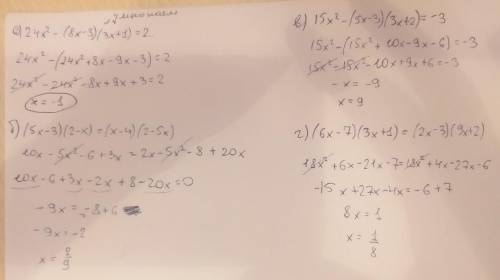 умножаем
а) 24x² - (8x-3)(3x+1) = 2
24x² - (24x² + 8x - 9x - 3) = 2
24x² - 24x² - 8x + 9x + 3 = 2
x = -1
б) (5x-3)(2-x) = (x-4)(2-5x)
10x - 5x² - 6 + 3x = 2x - 5x² - 8 + 20x
10x - 6 + 3x - 2x + 8 - 20x = 0
-9x = -8 + 6
-9x = -2
x = 2/9
в) 15x² - (5x-3)(3x+2) = -3
15x² - (15x² + 10x - 9x - 6) = -3
15x² - 15x² - 10x + 9x + 6 = -3
-x = -9
x = 9
г) (6x-7)(3x+1) = (2x-3)(9x+2)
18x² + 6x - 21x - 7 = 18x² + 4x - 27x - 6
-15x + 27x - 4x = -6 + 7
8x = 1
x = 1/8